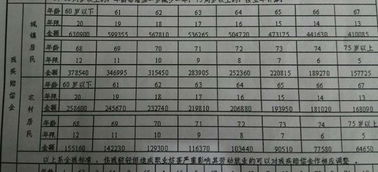 年龄 60岁以下 61 62 63 64 65 66 67
年限 20 19 18 17 16 15 14 13
金额 630900 599355 567810 536265 504720 473175 441630 410085
年龄 68 69 70 71 72 73 74 75岁以上
年限 12 11 10 9 8 7 6 5
金额 378540 346995 315450 283905 252360 220815 189270 157725
年龄 60岁以下 61 62 63 64 65 66 67
年限 20 19 18 17 16 15 14 13
金额 258600 245670 232740 219810 206880 193950 181020 168090
年龄 68 69 70 71 72 73 74 75岁以上
年限 12 11 10 9 8 7 6 5
金额 155160 142230 129300 116370 103440 90510 77580 64650
城镇居民
农村居民
残疾赔偿金
以上系全残标准，伤残较轻但造成职业妨害严重影响其劳动就业的可以对残疾赔偿金作相应调整